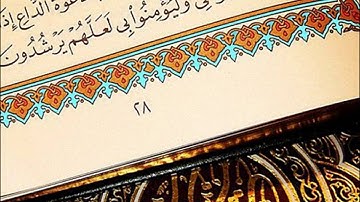 دَعْوَةَ الدَّاعِ إِذَا
وَلْيُؤْمِنُوا۟ بِى لَعَلَّهُمْ يَرْشُدُونَ
٢٨